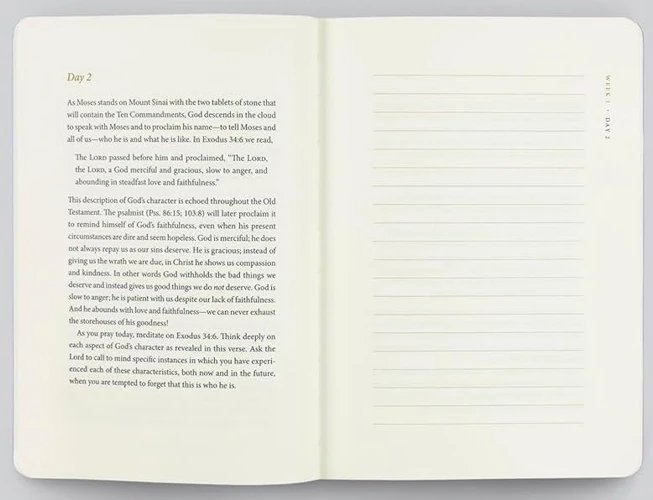 Day 2
As Moses stands on Mount Sinai with the two tablets of stone that
will contain the Ten Commandments, God descends in the cloud
to speak with Moses and to proclaim his name—to tell Moses and
all of us—who he is and what he is like. In Exodus 34:6 we read,
The LORD passed before him and proclaimed, “The LORD,
the LORD, a God merciful and gracious, slow to anger, and
abounding in steadfast love and faithfulness.”
This description of God’s character is echoed throughout the Old
Testament. The psalmist (Pss. 86:15; 103:8) will later proclaim it
to remind himself of God’s faithfulness, even when his present
circumstances are dire and seem hopeless. God is merciful; he does
not always repay us as our sins deserve. He is gracious; instead of
giving us the wrath we are due, in Christ he shows us compassion
and kindness. In other words God withholds the bad things we
deserve and instead gives us good things we do not deserve. God is
slow to anger; he is patient with us despite our lack of faithfulness.
And he abounds with love and faithfulness—we can never exhaust
the storehouses of his goodness!
As you pray today, meditate on Exodus 34:6. Think deeply on
each aspect of God’s character as revealed in this verse. Ask the
Lord to call to mind specific instances in which you have experi-
enced each of these characteristics, both now and in the future,
when you are tempted to forget that this is who he is.
WEEK 1 · DAY 2